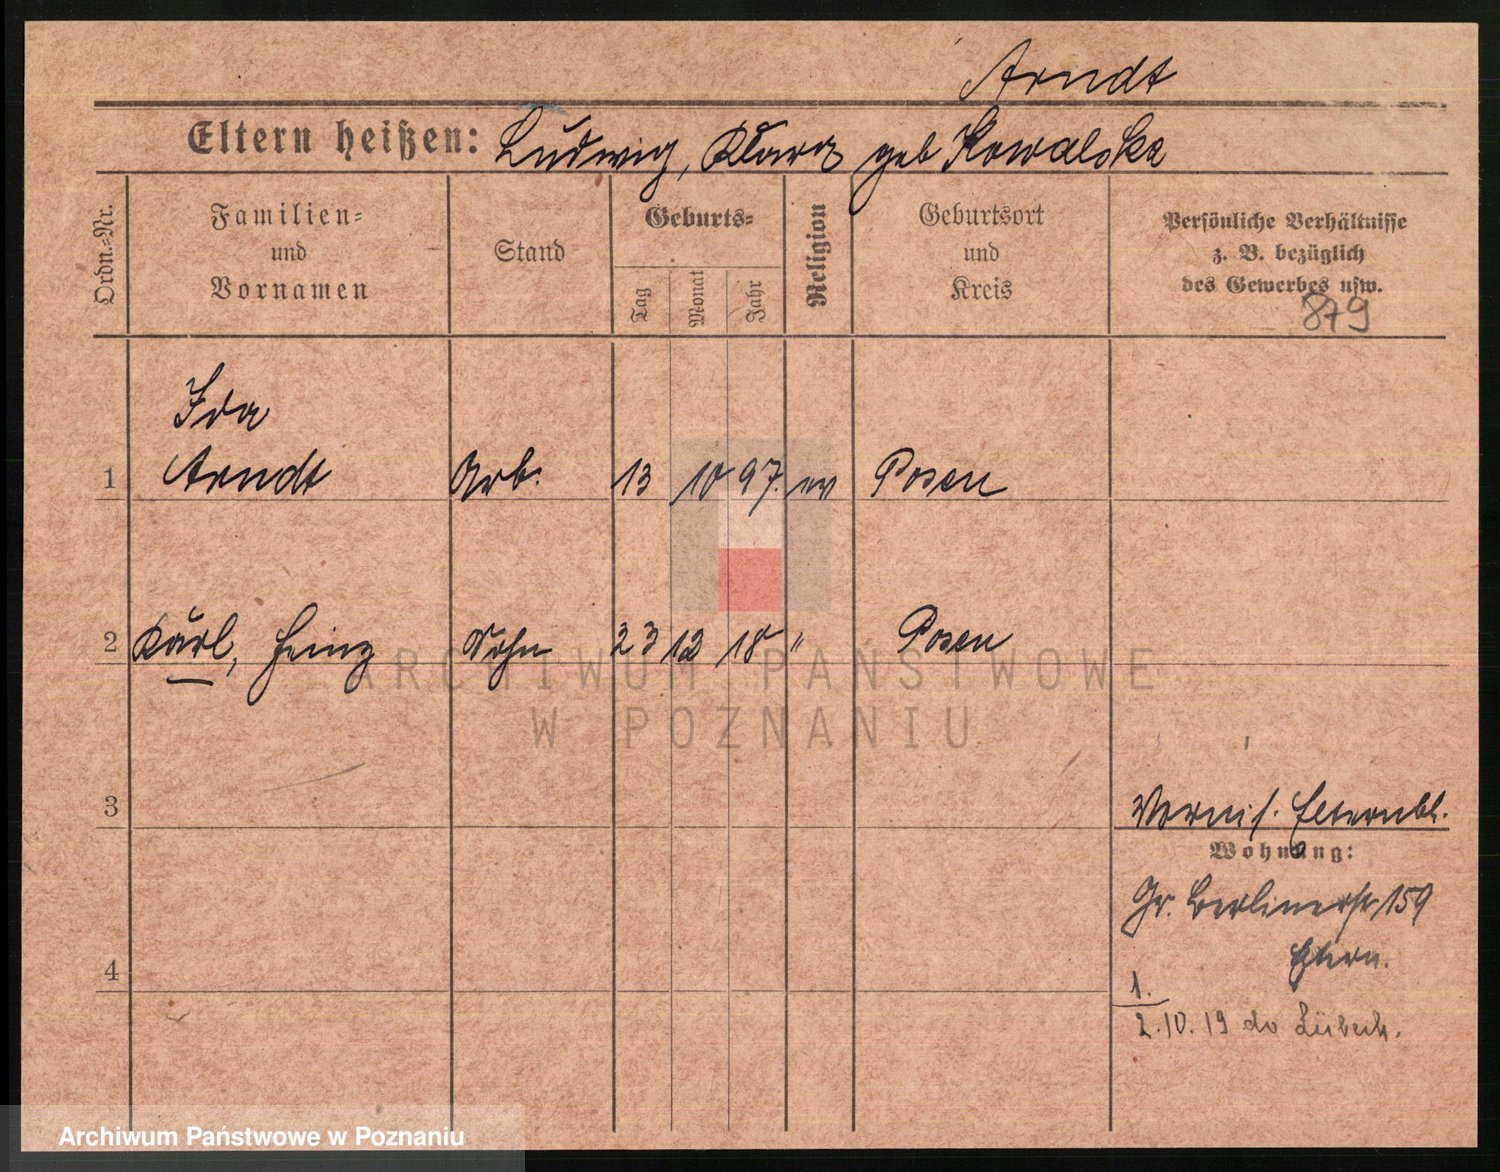 Arndt
Eltern heißen: Ludwig, Klara geb Kowalska
Ordn.=Nr.
Familien=
und
Vornamen
Stand
Geburts=
Tag
Monat
Jahr
Religion
Geburtsort
und
Kreis
Persönliche Verhältnisse
z. B. bezüglich
des Gewerbes usw.
879
Ida
1 Arndt Arb. 13 10 97. ev Posen
2 Karl, Heinz Sohn 23 12 18 " Posen
3
Elternbl.
Wohnung:
Gr. Berlinerstr 159
Eltern.
4
1.
2.10.19 do Lübeck.
ARCHIWUM PAŃSTWOWE
W POZNANIU
Archiwum Państwowe w Poznaniu